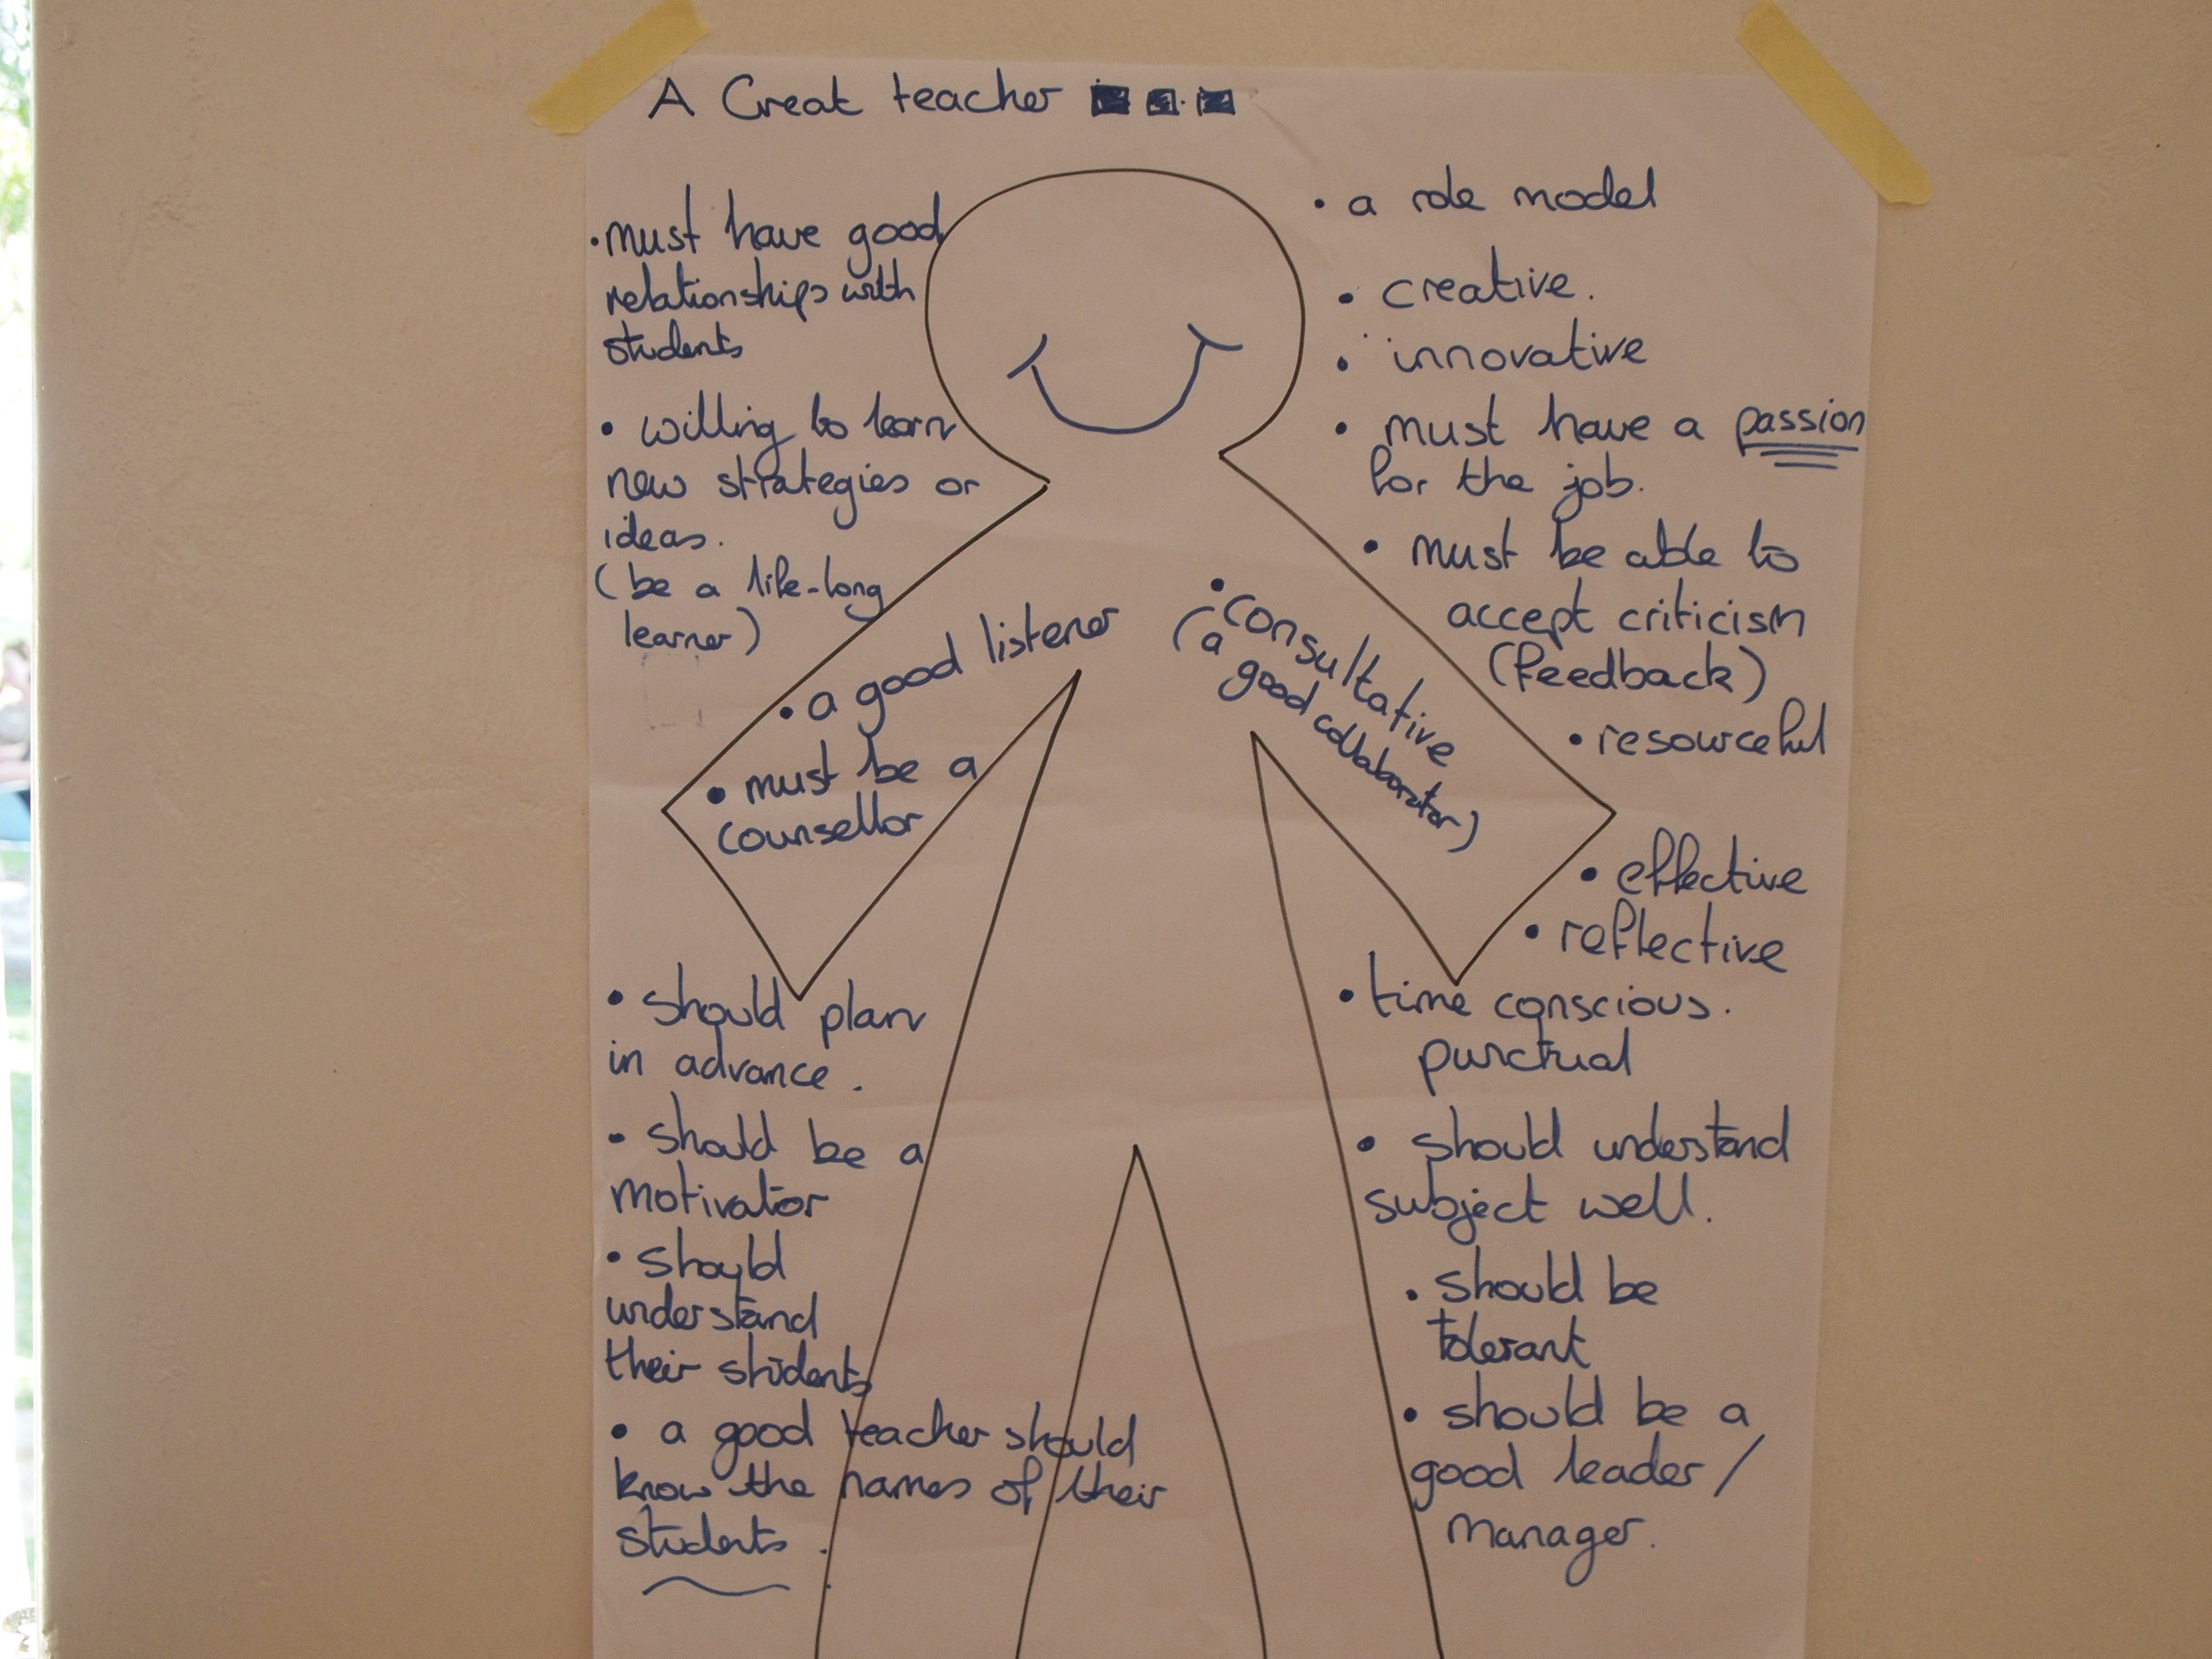 A Great teacher
• must have good
relationships with
students
• willing to learn
new strategies or
ideas.
(be a life-long
learner)
• a good listener
• must be a
counsellor
• should plan
in advance.
• should be a
motivator
• should
understand
their students
• a good teacher should
know the names of their
students.
• a role model
• creative.
• innovative
• must have a passion
for the job.
• must be able to
accept criticism
(feedback)
• resourceful
• consultative
(a good collaborator)
• effective
• reflective
• time conscious.
punctual
• should understand
subject well.
• should be
tolerant
• should be a
good leader/
manager.